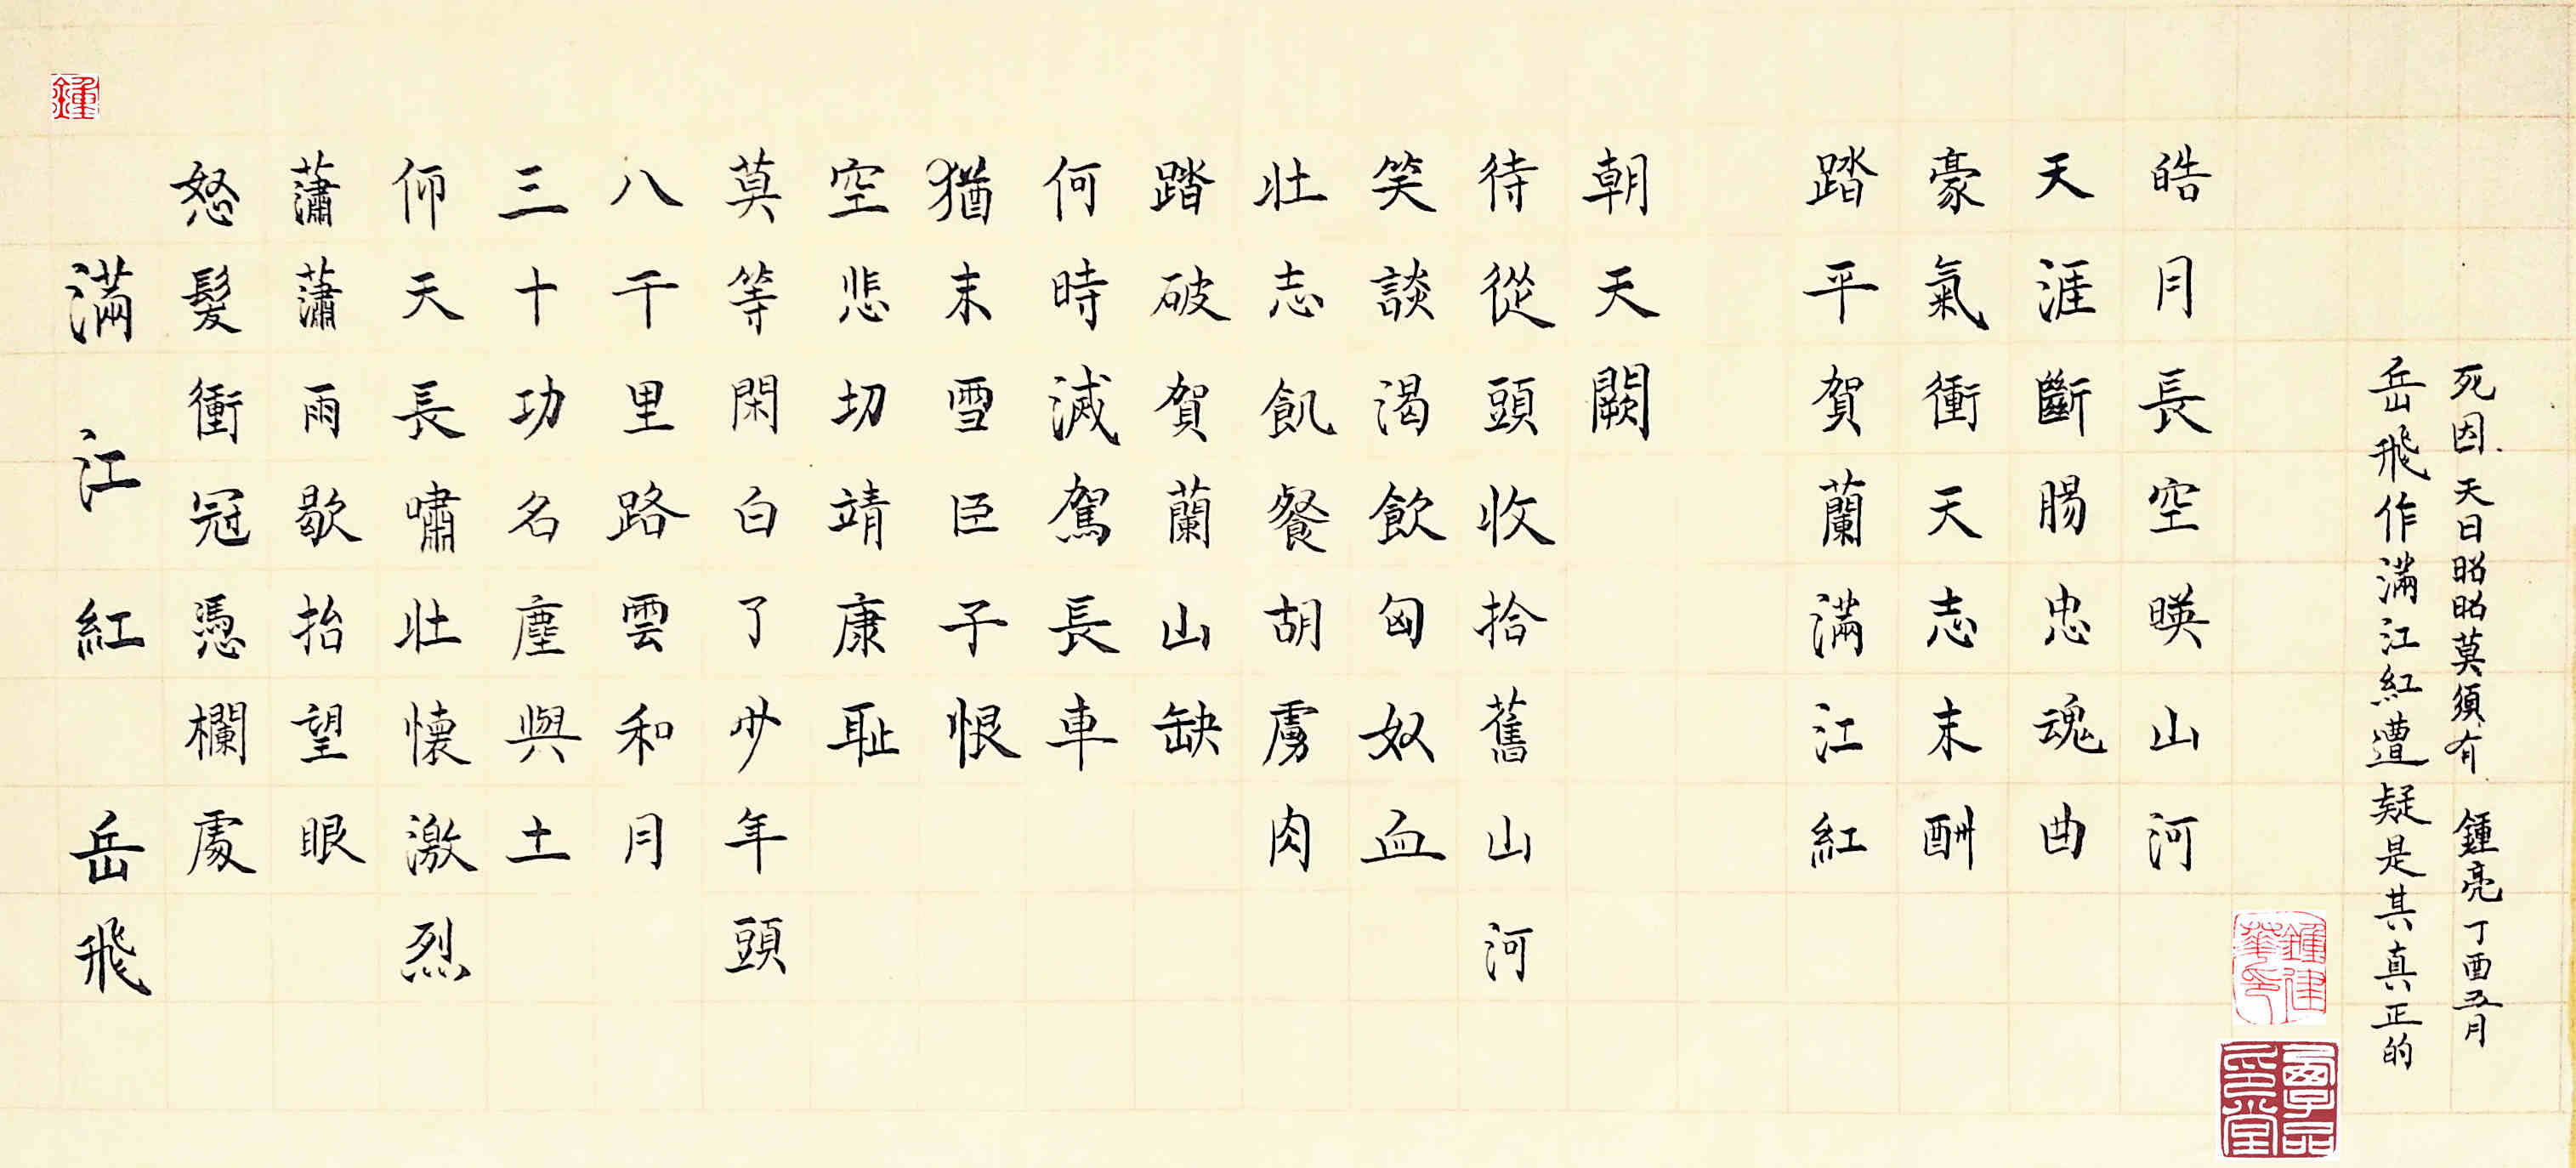 滿江紅 岳飛
怒髮衝冠憑欄處
瀟瀟雨歇抬望眼
仰天長嘯壯懷激烈
三十功名塵與土
八千里路雲和月
莫等閑白了少年頭
空悲切靖康耻
猶末雪臣子恨
何時滅駕長車
踏破賀蘭山缺
壯志飢餐胡虜肉
笑談渴飲匈奴血
待從頭收拾舊山河
朝天闕
踏平賀蘭滿江紅
豪氣衝天志末酬
天涯斷腸忠魂曲
皓月長空暎山河
岳飛作滿江紅遭疑是其真正的
死因.天日昭昭莫須有 鍾亮丁酉五月
鍾
鍾建華印